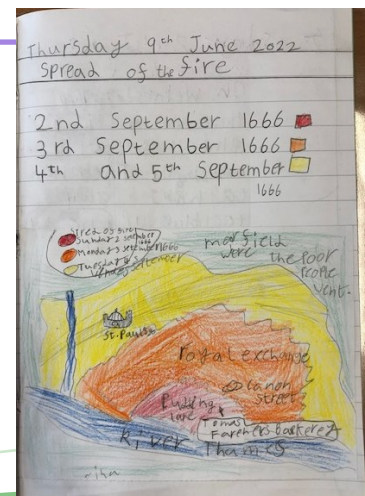 Thursday 9th June 2022
Spread of the fire
2nd September 1666
3rd September 1666
4th and 5th September
1666
Sunday 2 September
1666
Monday 3 September 1666
Tuesday
September
morfield
were
the Poor
People
went.
St. Pauls
royal exchange
canon
street
Pudding
lane
Tomas
Fareners backerey
River Thames